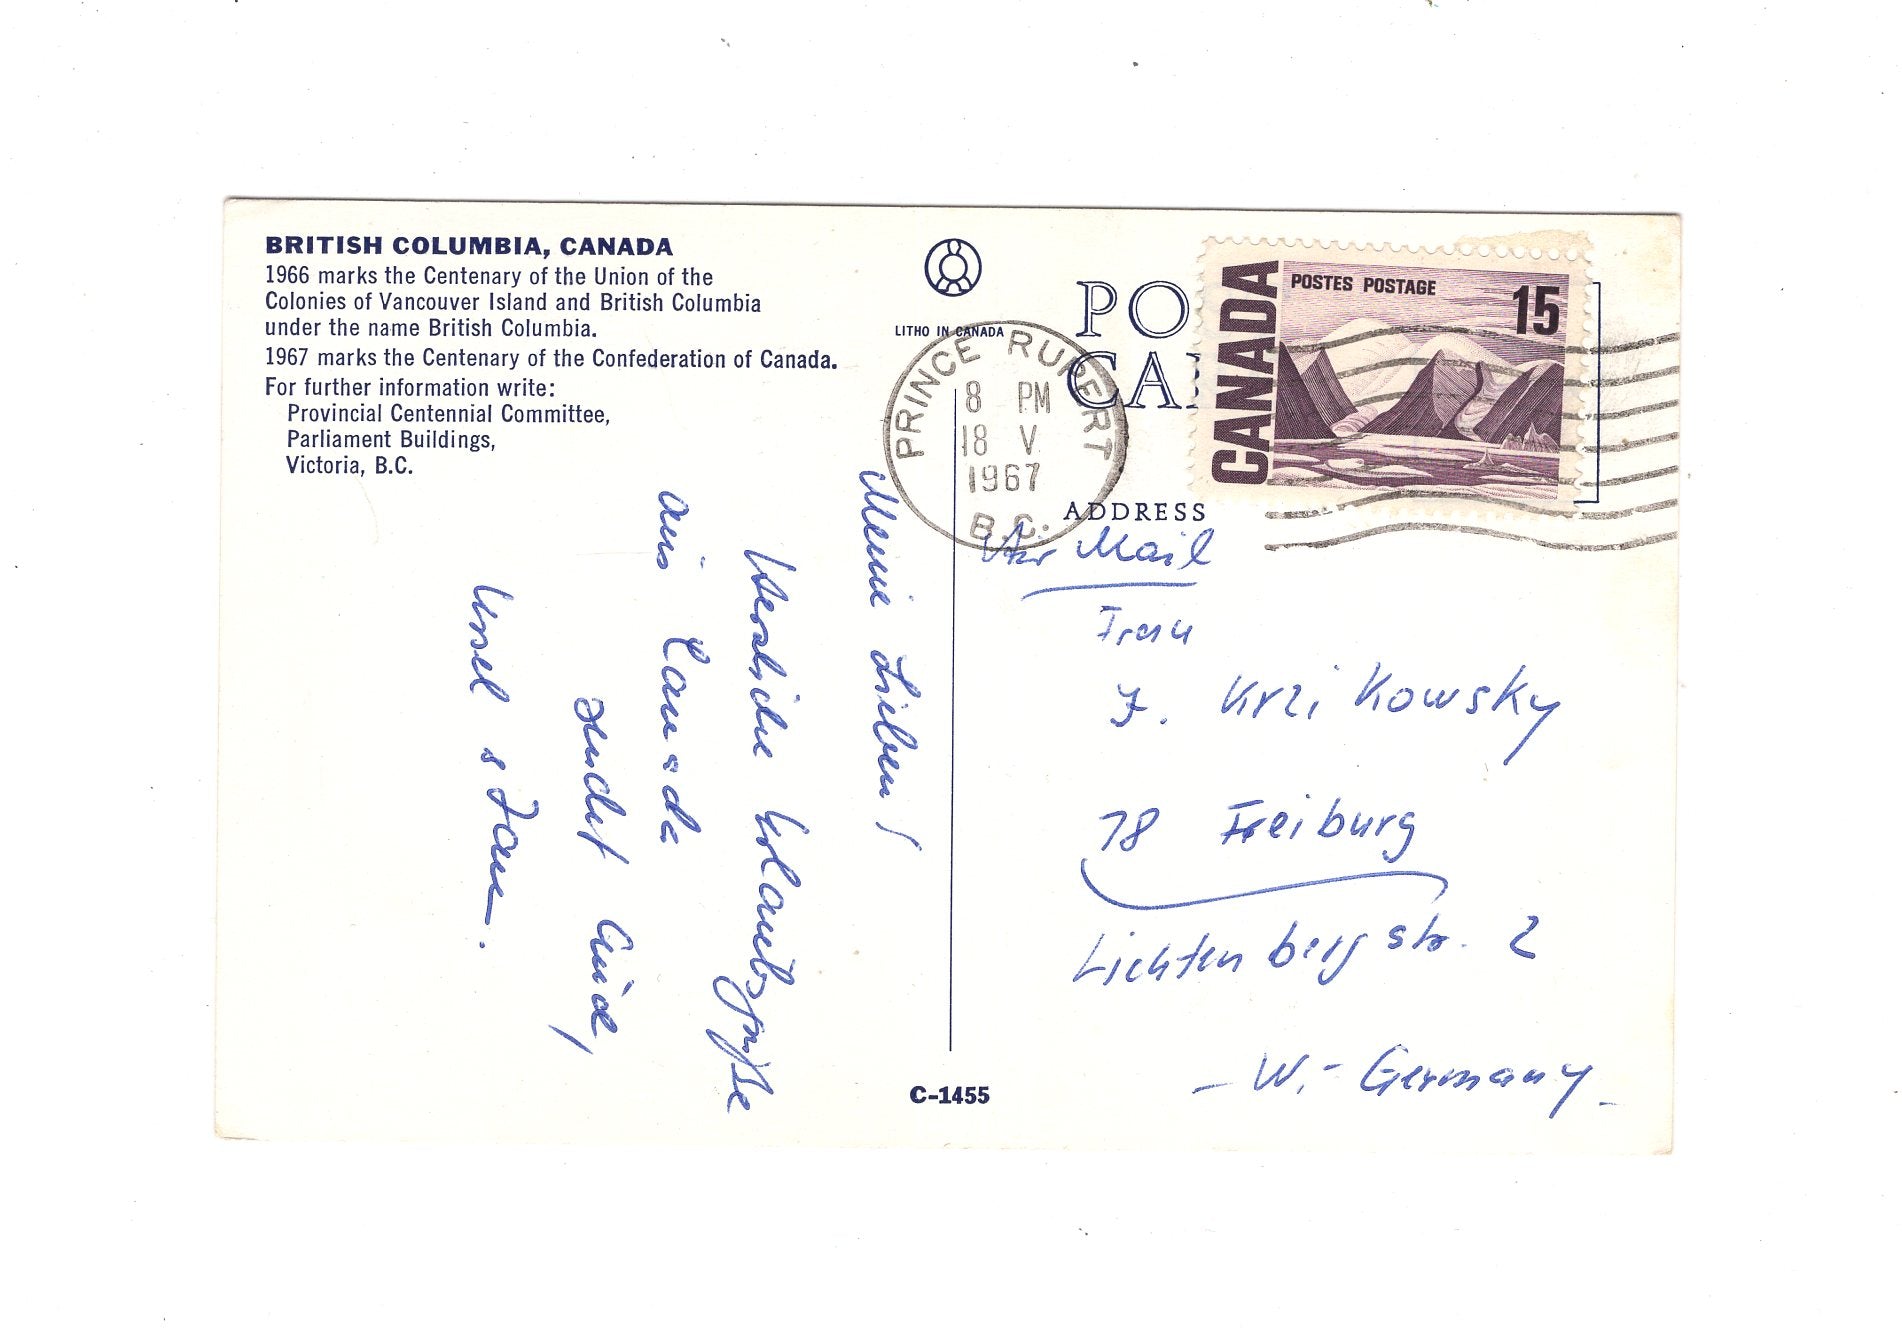 BRITISH COLUMBIA, CANADA
1966 marks the Centenary of the Union of the
Colonies of Vancouver Island and British Columbia
under the name British Columbia.
1967 marks the Centenary of the Confederation of Canada.
For further information write:
Provincial Centennial Committee,
Parliament Buildings,
Victoria, B.C.
LITHO IN CANADA
PO
CA
CANADA
POSTES POSTAGE
15
PRINCE RUPERT
8 PM
18 V
1967
B.C.
ADDRESS
Air Mail
Frau
F. Krzikowsky
78 Freiburg
Lichtenbergstr. 2
- W.- Germany -
Meine Lieben!
Herzliche Urlaubsgrüße
aus Canada
sendet
Ursel &
C-1455